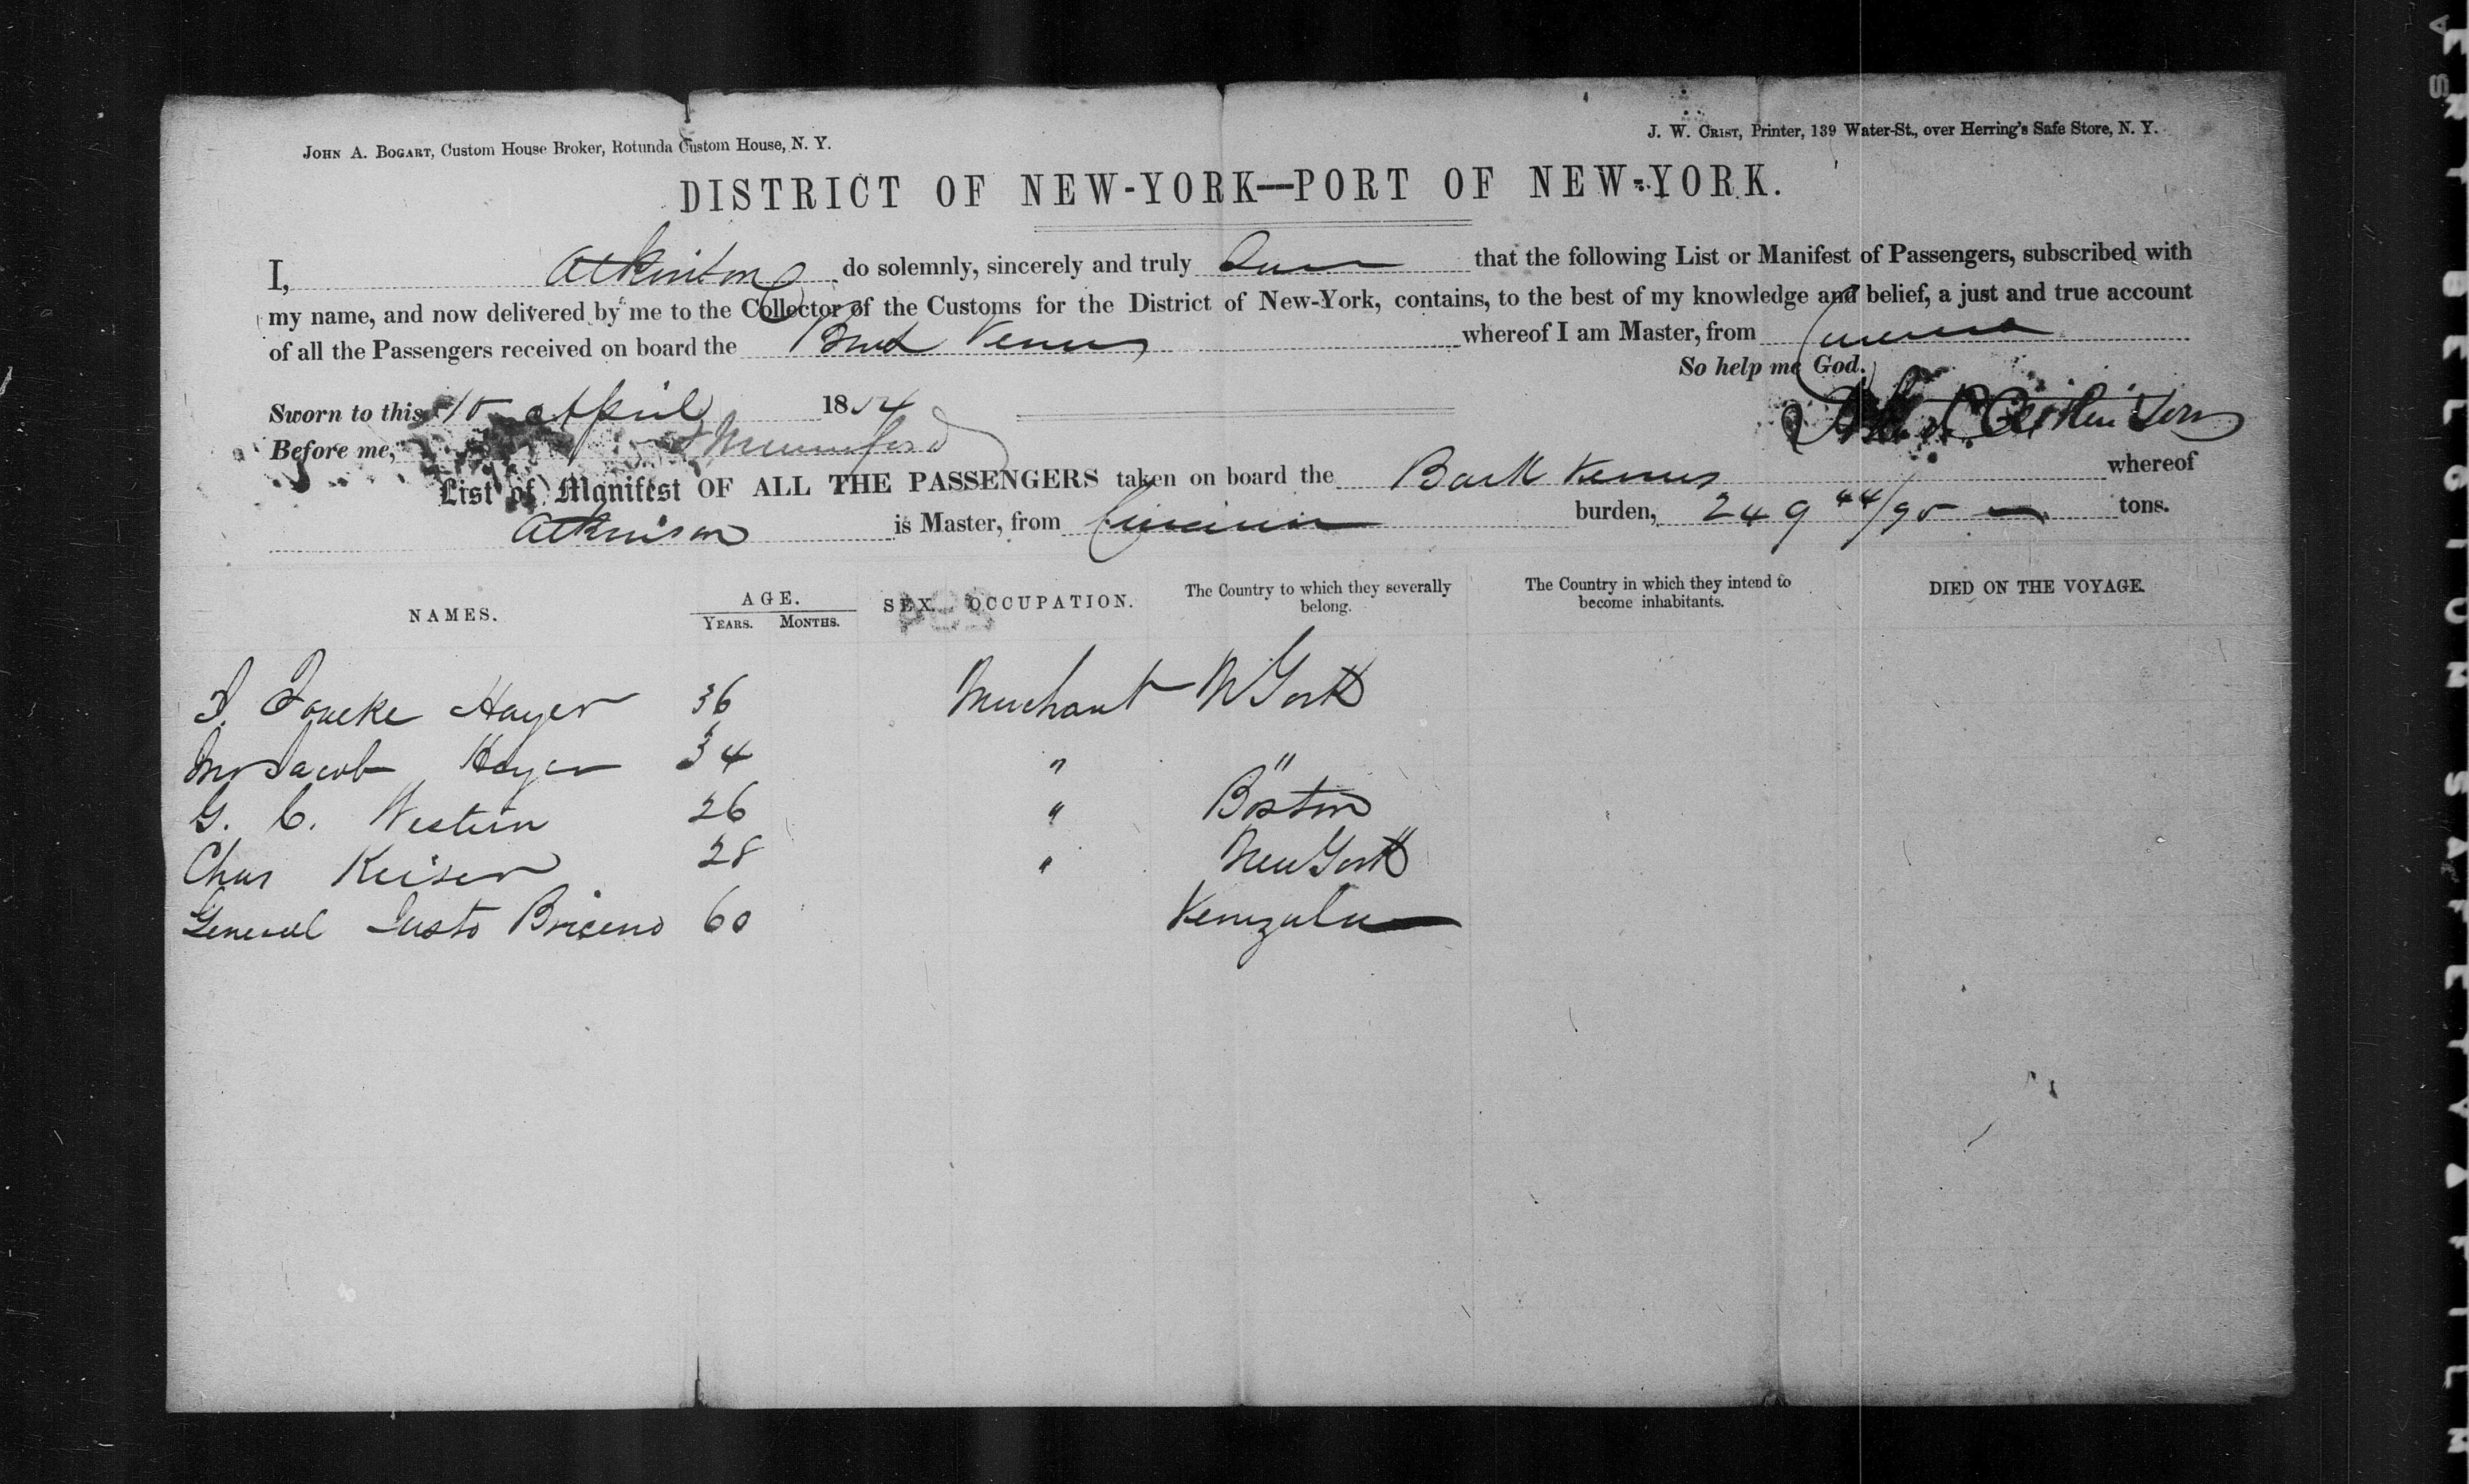 JOHN A. BOGART, Custom House Broker, Rotunda Custom House, N. Y.
J. W. CRIST, Printer, 139 Water-St., over Herring's Safe Store, N. Y.
DISTRICT OF NEW-YORK—PORT OF NEW-YORK.
I, Atkinson do solemnly, sincerely and truly that the following List or Manifest of Passengers, subscribed with
my name, and now delivered by me to the Collector of the Customs for the District of New-York, contains, to the best of my knowledge and belief, a just and true account
of all the Passengers received on board the Venus whereof I am Master, from
So help me God.
Sworn to this 10 April 1854
Before me, Mumford
Atkinson
List or Manifest OF ALL THE PASSENGERS taken on board the Bark Venus whereof
Atkinson is Master, from burden, 249 44/95 tons.
NAMES. AGE. YEARS. MONTHS. SEX. OCCUPATION. The Country to which they severally belong. The Country in which they intend to become inhabitants. DIED ON THE VOYAGE.
Hayer 36 Merchant N York
Jacob Hayer 34 " "
G. C. Western 26 " Boston
Chas Keiser 28 " New York
General Justo Briceno 60 Venezula